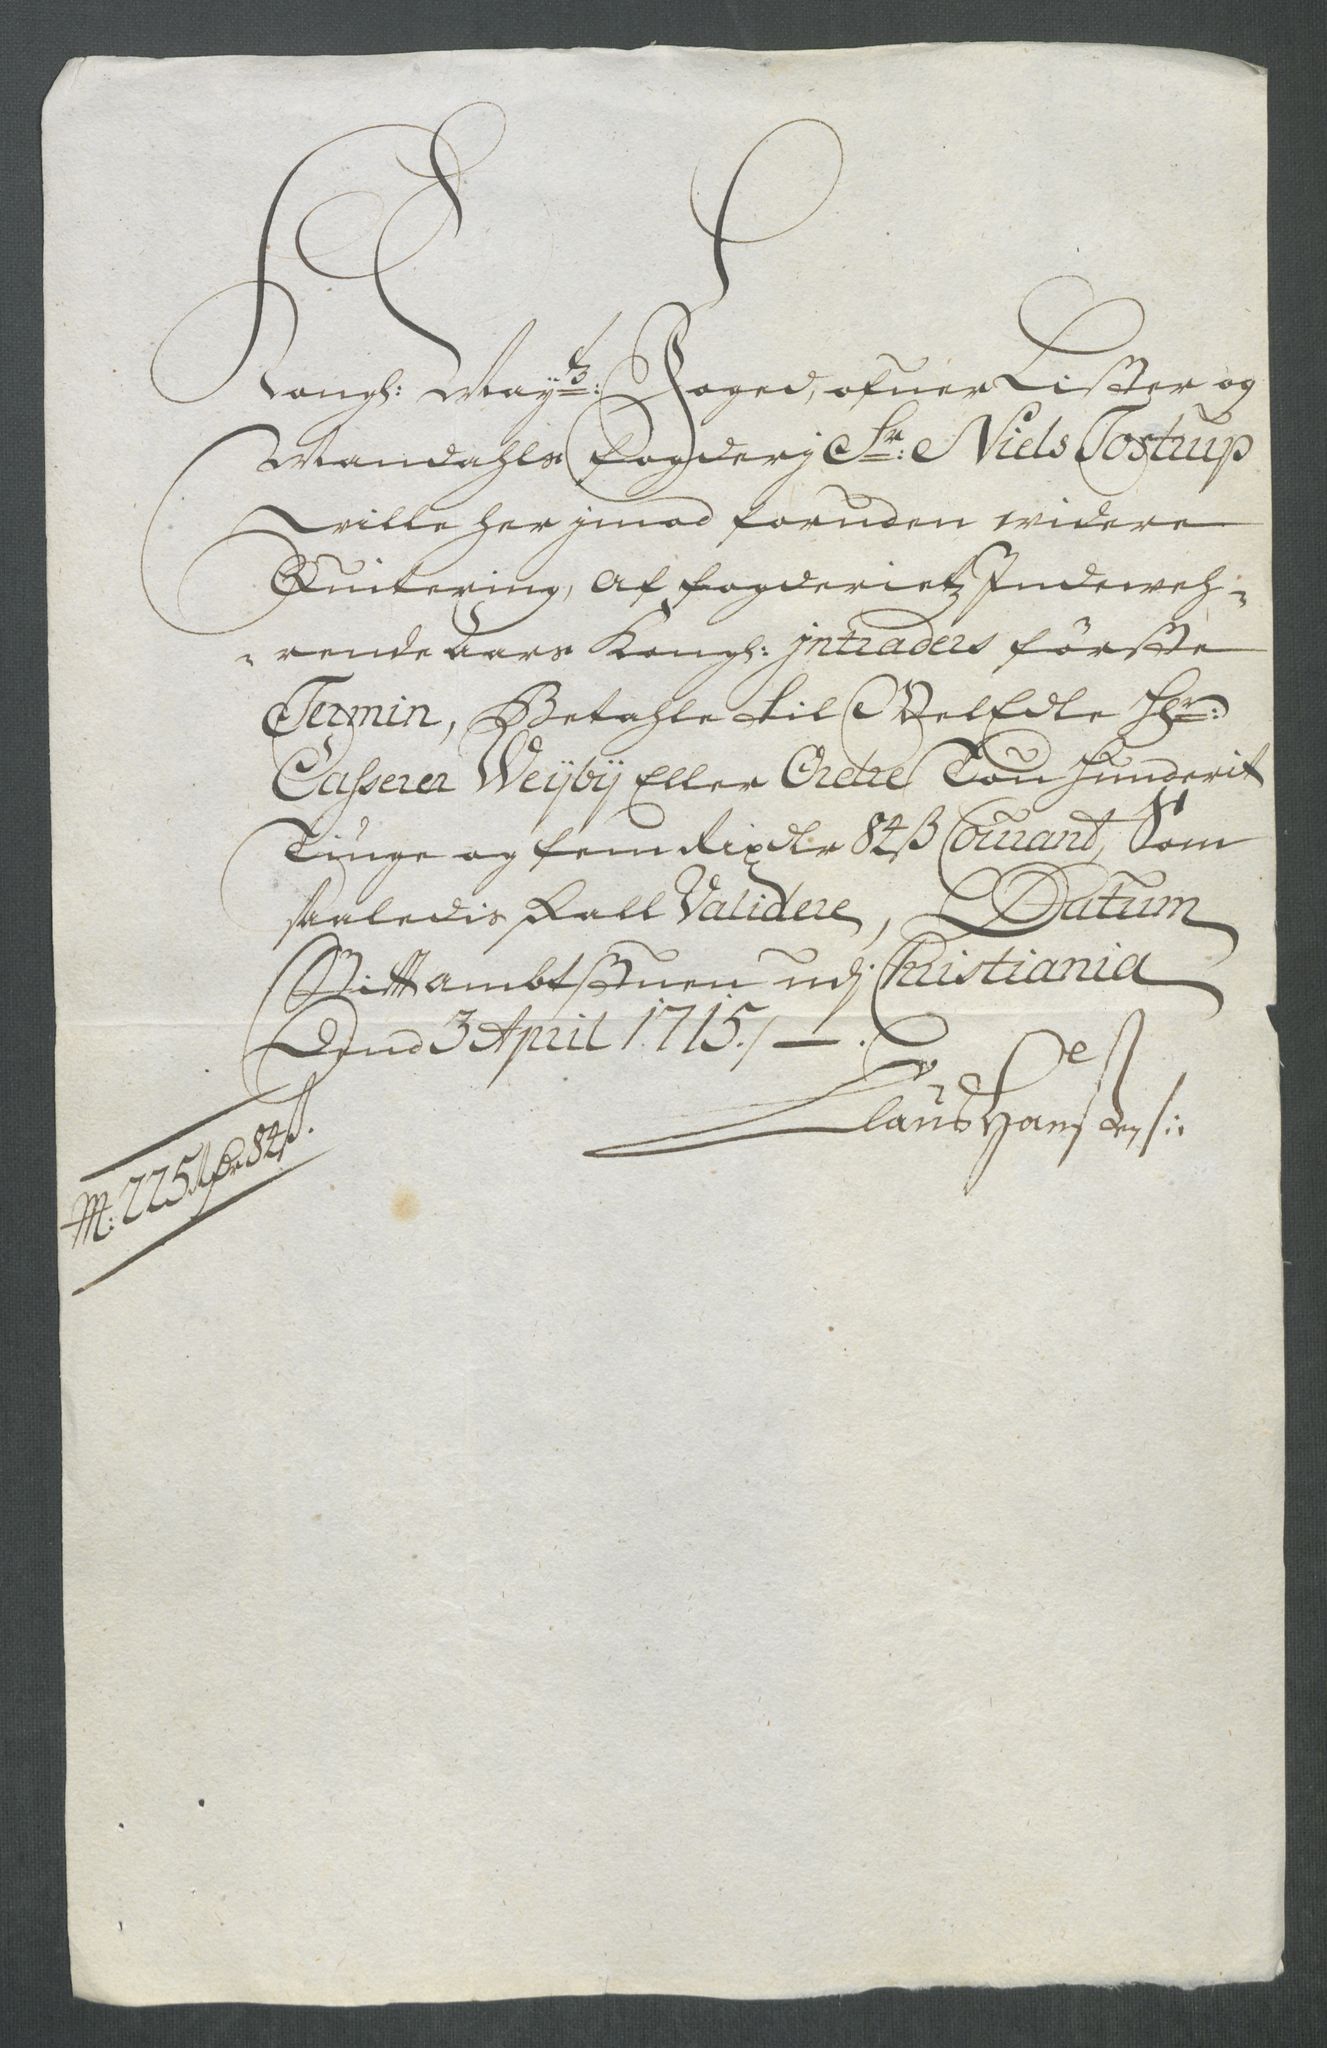 Kongl: Mayts: Foged, ofuer Lister og
Mandahls fogderj Sr: Niels Tostrup
ville her jmod foruden videre
Quitering, af fogderietz Indeweh-
-rende Aars Kongl: jntraders förste
Termin, Betahle til VelEdle Hr:
Casserer Weÿbÿ Eller Ordre Tou hunderit
Tiuge og fem Rixdlr 84ß Courant, Som
saaledis skall Validere, Datum
Stittambtstuen udj Christiania
Dend 3 April 1715./.
Claus Hansen
M: 225 Rdr 84ß.